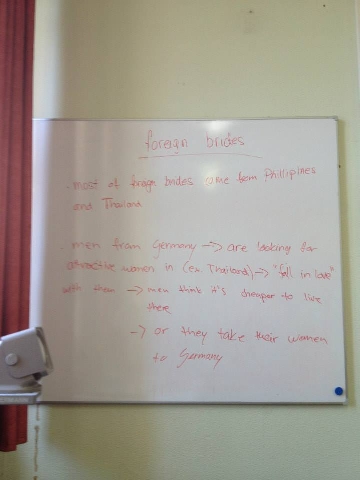 foreign brides
- most of foreign brides come from Phillipines
and Thailand
- men from Germany -> are looking for
attractive women in (ex. Thailand) -> "fall in love"
with them -> men think it's cheaper to live
there
-> or they take their women
to Germany